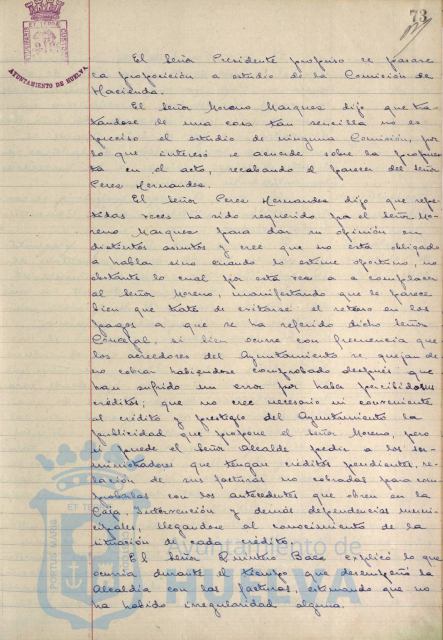 73
AYUNTAMIENTO DE HUELVA
El Señor Presidente propuso se pasase
la proposición a estudio de la Comisión de
Hacienda.
El Señor Moreno Marquez dijo que tra-
tándose de una cosa tan sencilla no es
preciso el estudio de ninguna Comisión, por
lo que interesó se acuerde sobre la propues-
ta en el acto, recabando el parecer del Señor
Perez Hernandez.
El Señor Perez Hernandez dijo que repe-
tidas veces ha sido requerido por el Señor Mo-
reno Marquez para dar su opinión en
distintos asuntos y cree que no está obligado
a hablar sino cuando lo estime oportuno, no
obstante lo cual por esta vez va a complacer
al Señor Moreno, manifestando que le parece
bien que trate de evitarse el retraso en los
pagos a que se ha referido dicho Señor
Concejal, si bien ocurre con frecuencia que
los acreedores del Ayuntamiento se quejan de
no cobrar habiéndose comprobado después que
han sufrido un error por haber percibido sus
créditos; que no cree necesario ni conveniente
al crédito y prestigio del Ayuntamiento la
publicidad que propone el Señor Moreno, pero
si puede el Señor Alcalde pedir a los su-
ministradores que tengan créditos pendientes, re-
lación de sus facturas no cobradas para com-
probarlas con los antecedentes que obren en la
Caja, Intervención y demás dependencias muni-
cipales, llegandose al conocimiento de la
situación de cada crédito.
El Señor Quintero Baez explicó lo que
ocurria durante el tiempo que desempeñó la
Alcaldia con las facturas, estimando que no
ha habido irregularidad alguna.
PORTUS MARIS
Ayuntamiento de
HUELVA